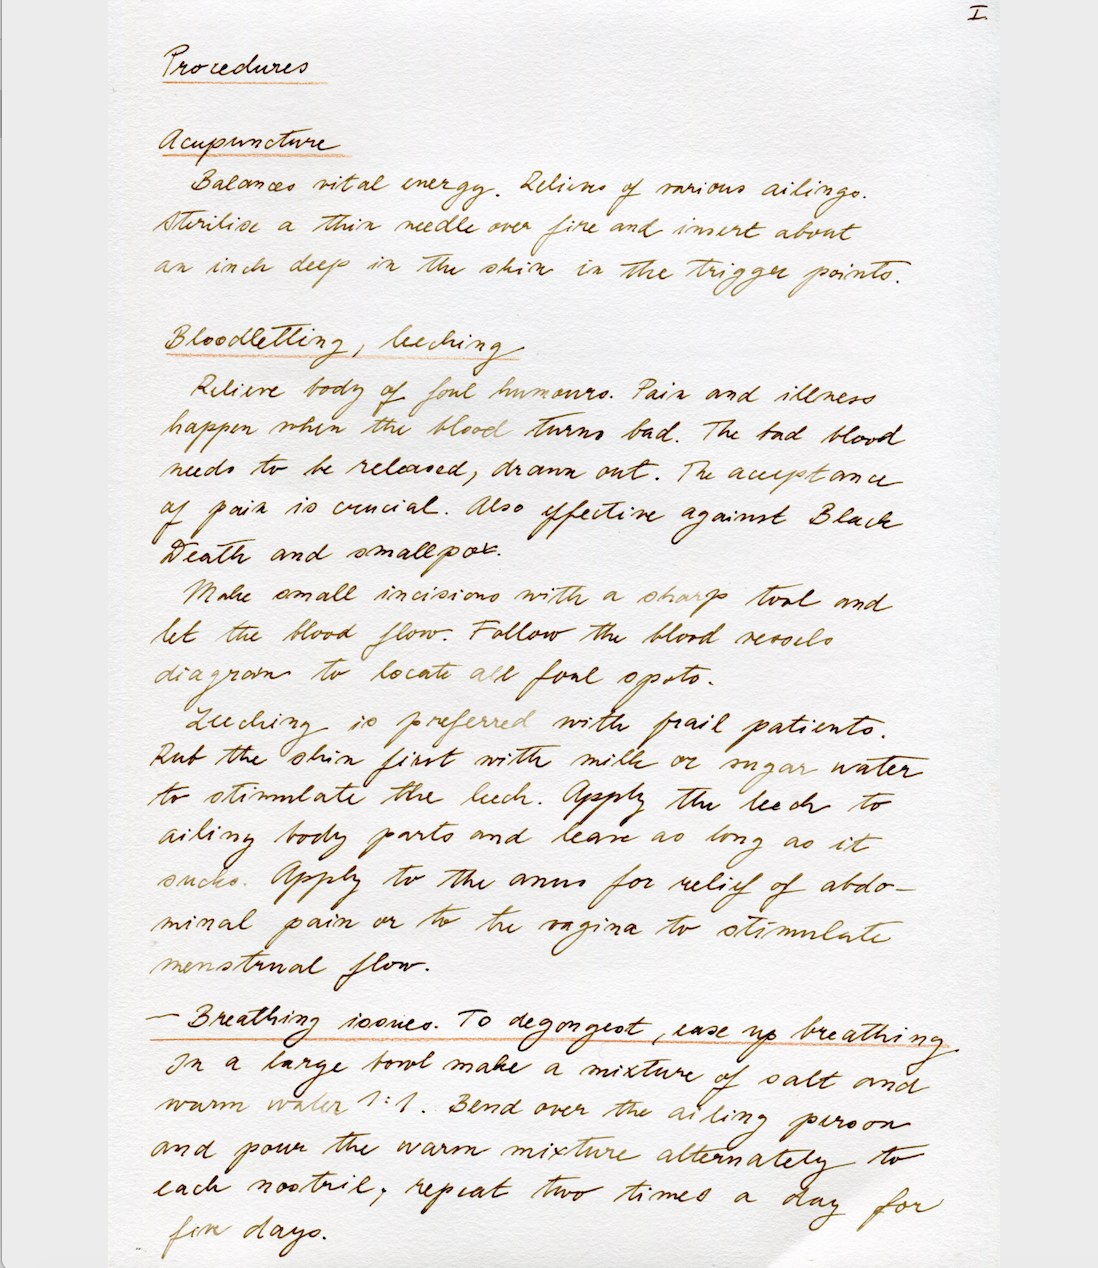 I.
Procedures
Acupuncture
Balances vital energy. Relieves of various ailings.
Sterilise a thin needle over fire and insert about
an inch deep in the skin in the trigger points.
Bloodletting, leeching
Relieve body of foul humours. Pain and illness
happen when the blood turns bad. The bad blood
needs to be released, drawn out. The acceptance
of pain is crucial. Also effective against Black
Death and smallpox.
Make small incisions with a sharp tool and
let the blood flow. Follow the blood vessels
diagram to locate all foul spots.
Leeching is preferred with frail patients.
Rub the skin first with milk or sugar water
to stimulate the leech. Apply the leech to
ailing body parts and leave as long as it
sucks. Apply to the anus for relief of abdo-
minal pain or to the vagina to stimulate
menstrual flow.
— Breathing issues. To degongest, ease up breathing
In a large bowl make a mixture of salt and
warm water 1:1. Bend over the ailing person
and pour the warm mixture alternately to
each nostril, repeat two times a day for
few days.